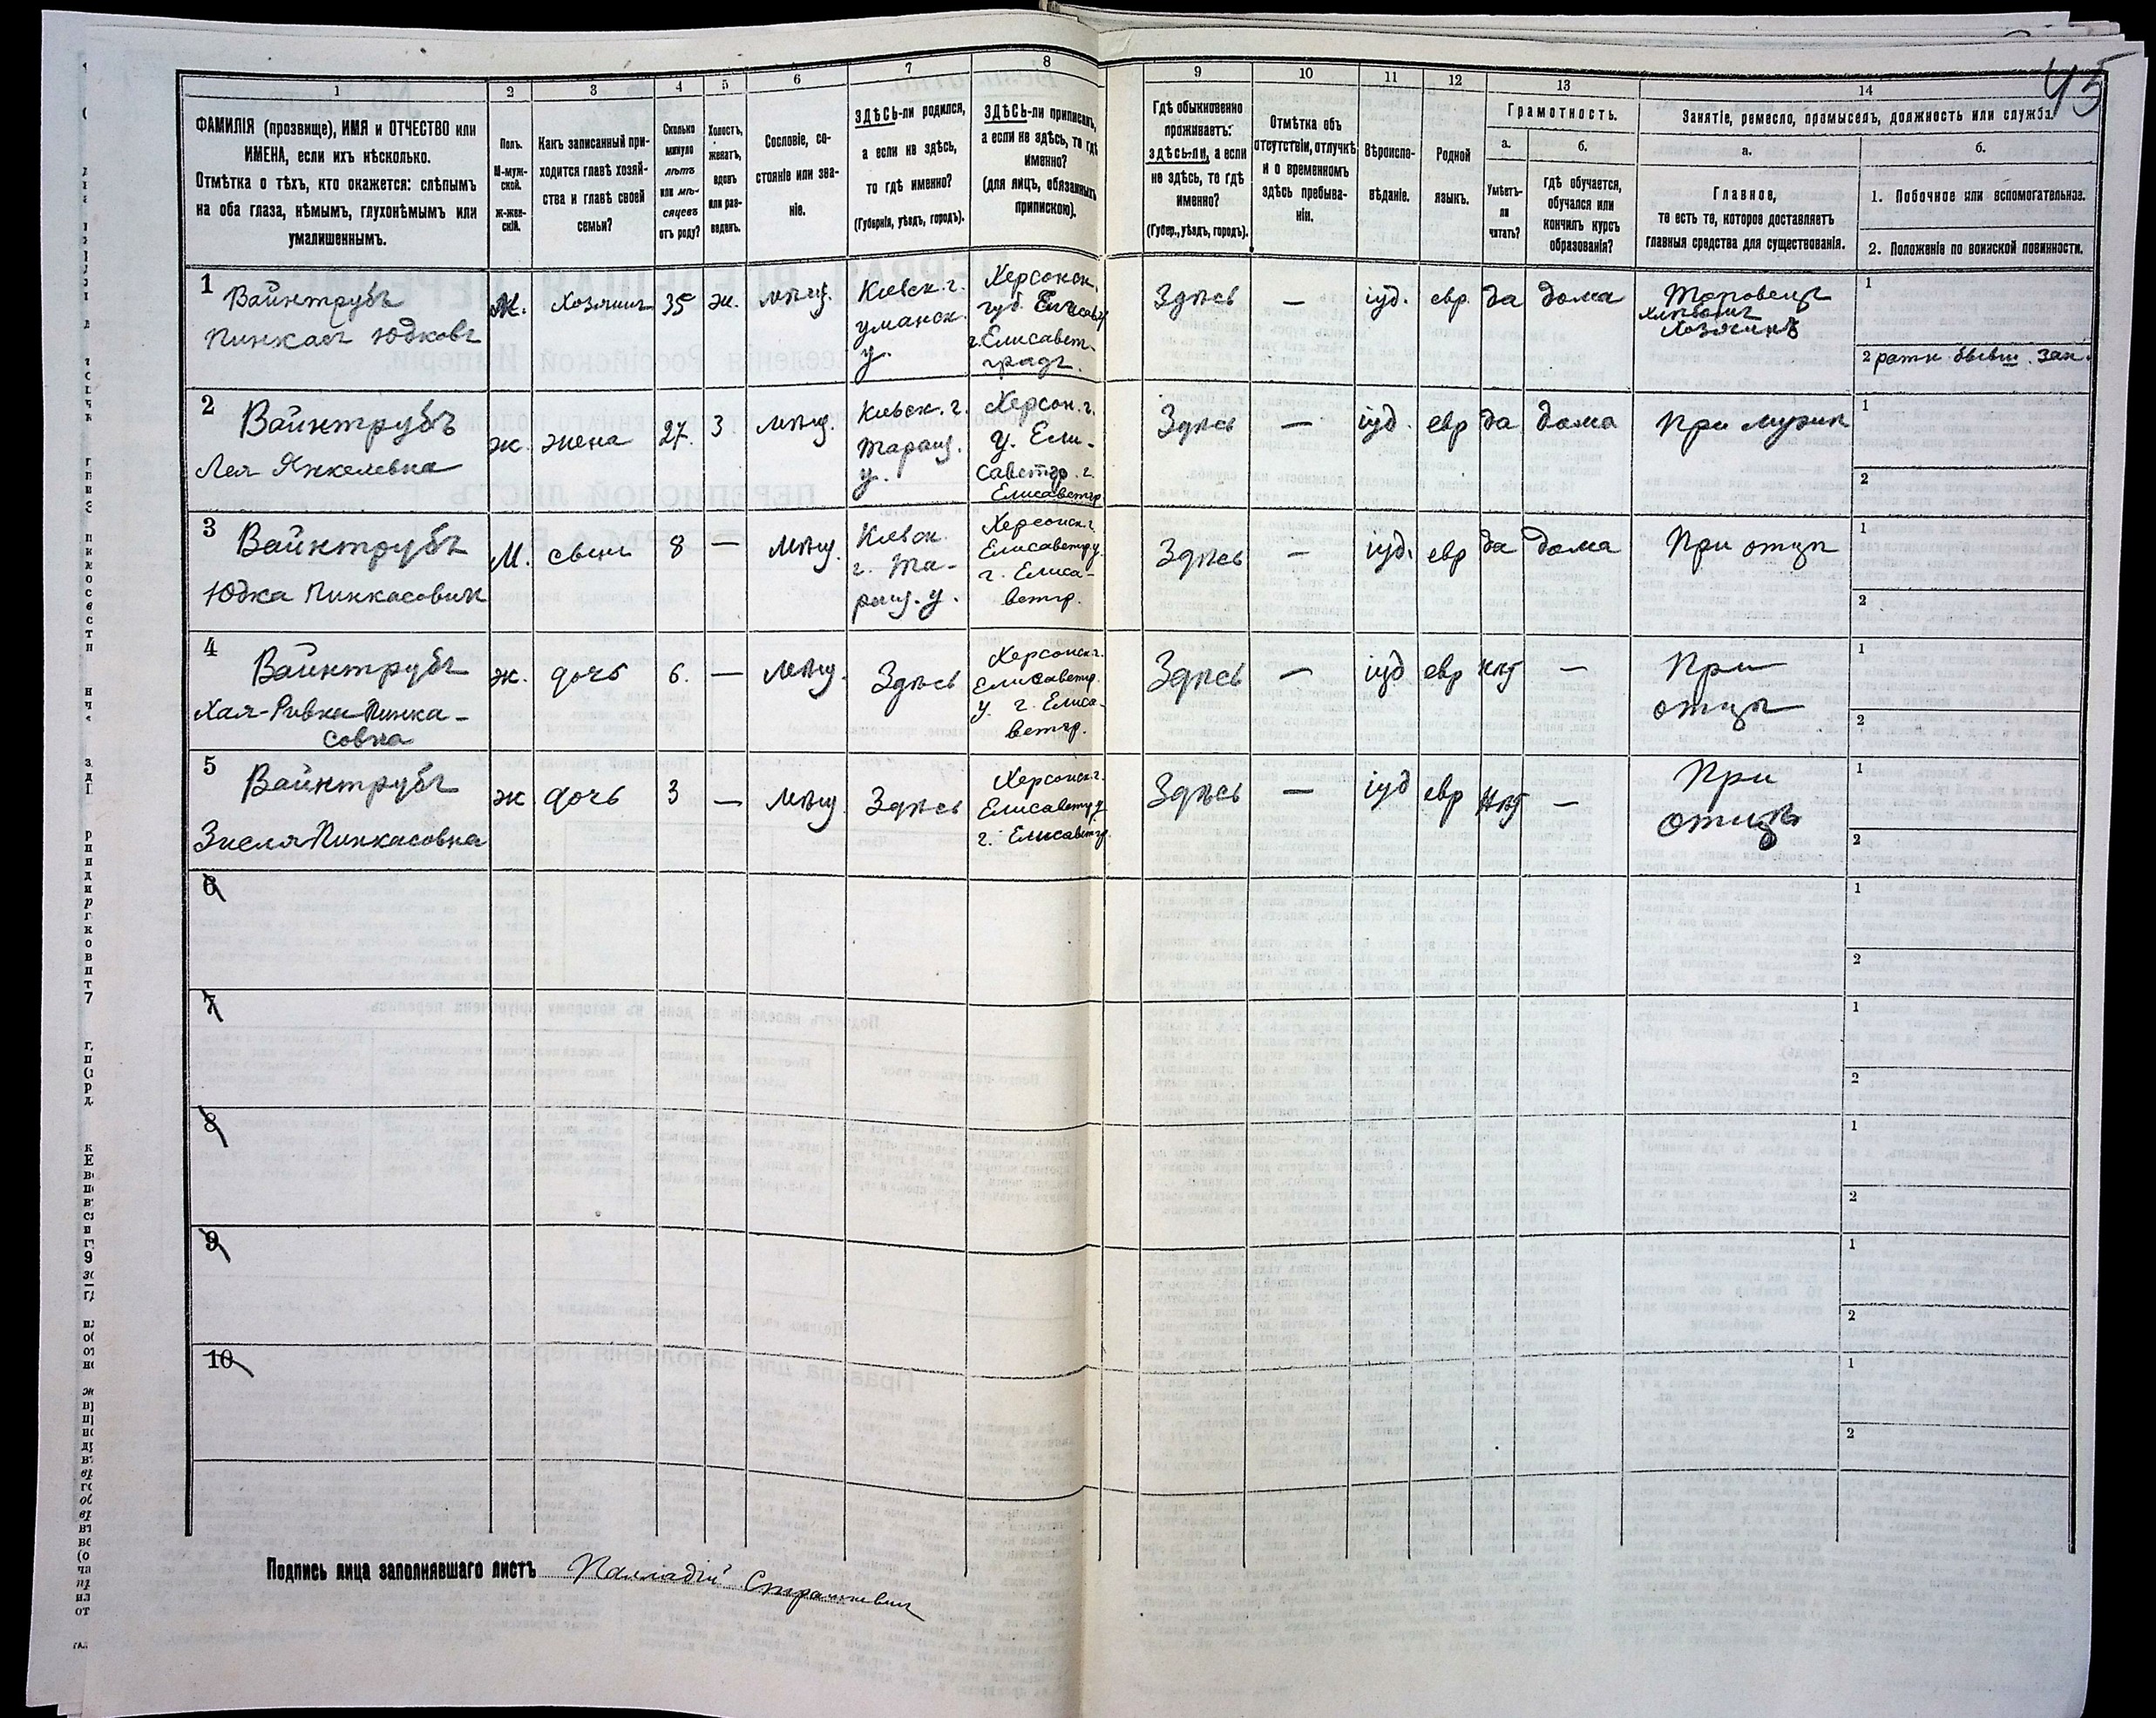 45
1
2
3
4
5
6
7
8
9
10
11
12
13
14
ФАМИЛІЯ (прозвище), ИМЯ и ОТЧЕСТВО или
ИМЕНА, если ихъ нѣсколько.
Отмѣтка о тѣхъ, кто окажется: слѣпымъ
на оба глаза, нѣмымъ, глухонѣмымъ или
умалишеннымъ.
Полъ.
М-муж-
ской.
ж-жен-
скій.
Какъ записанный при-
ходится главѣ хозяй-
ства и главѣ своей
семьи?
Сколько
минуло
лѣтъ
или мѣ-
сяцевъ
отъ роду?
Холостъ,
женатъ,
вдовъ
или раз-
веденъ.
Сословіе, со-
стояніе или зва-
ніе.
ЗДѢСЬ-ли родился,
а если не здѣсь,
то гдѣ именно?
(Губернія, уѣздъ, городъ).
ЗДѢСЬ-ли приписанъ,
а если не здѣсь, то гдѣ
именно?
(для лицъ, обязанныхъ
припискою).
Гдѣ обыкновенно
проживаетъ:
здѣсь-ли, а если
не здѣсь, то гдѣ
именно?
(Губер., уѣздъ, городъ).
Отмѣтка объ
отсутствіи, отлучкѣ
и о временномъ
здѣсь пребыва-
ніи.
Вѣроиспо-
вѣданіе.
Родной
языкъ.
Грамотность.
а.
Умѣетъ-
ли
читать?
б.
гдѣ обучается,
обучался или
кончилъ курсъ
образованія?
Занятіе, ремесло, промыселъ, должность или служба.
а.
Главное,
то есть то, которое доставляетъ
главныя средства для существованія.
б.
1. Побочное или вспомогательное.
2. Положеніе по воинской повинности.
1 Вайнтрубъ
Пинкасъ Юдковъ
М.
Хозяинъ
35
ж.
мѣщ.
Кіевск. г.
уманск.
у.
Херсонск.
губ. Елисавт
г. Елисавет-
градъ.
Здѣсь
—
іуд.
евр.
да
дома
Хозяинъ
1
2 ратн бывш. зап.
2 Вайнтрубъ
Лея Янкелевна
ж.
жена
27.
З.
мѣщ.
Кіевск. г.
Таращ.
у.
Херсон. г.
у. Ели-
саветгр. г.
Елисаветгр
Здѣсь
—
іуд.
евр
да
дома
При мужѣ
1
2
3 Вайнтрубъ
Юдка Пинкасовъ
М.
сынъ
8
—
мѣщ.
Кіевск
г. Та-
ращ. у.
Херсонск г.
Елисаветгр у.
г. Елиса-
ветгр.
Здѣсь
—
іуд.
евр
да
дома
При отцѣ
1
2
4 Вайнтрубъ
Хая-Ривка Пинка-
совна
ж.
дочь
6.
—
мѣщ.
Здѣсь
Херсонск г.
Елисаветгр.
у. г. Елиса-
ветгр.
Здѣсь
—
іуд
евр
нѣт
—
При
отцѣ
1
2
5 Вайнтрубъ
Зисля Пинкасовна
ж
дочь
3
—
мѣщ.
Здѣсь
Херсонск г.
Елисаветгр у
г. Елисаветгр.
Здѣсь
—
іуд
евр
нѣт
—
При
отцѣ
1
2
6
1
2
7
1
2
8
1
2
9
1
2
10
1
2
Подпись лица заполнявшаго листъ Палладій Страшкевич